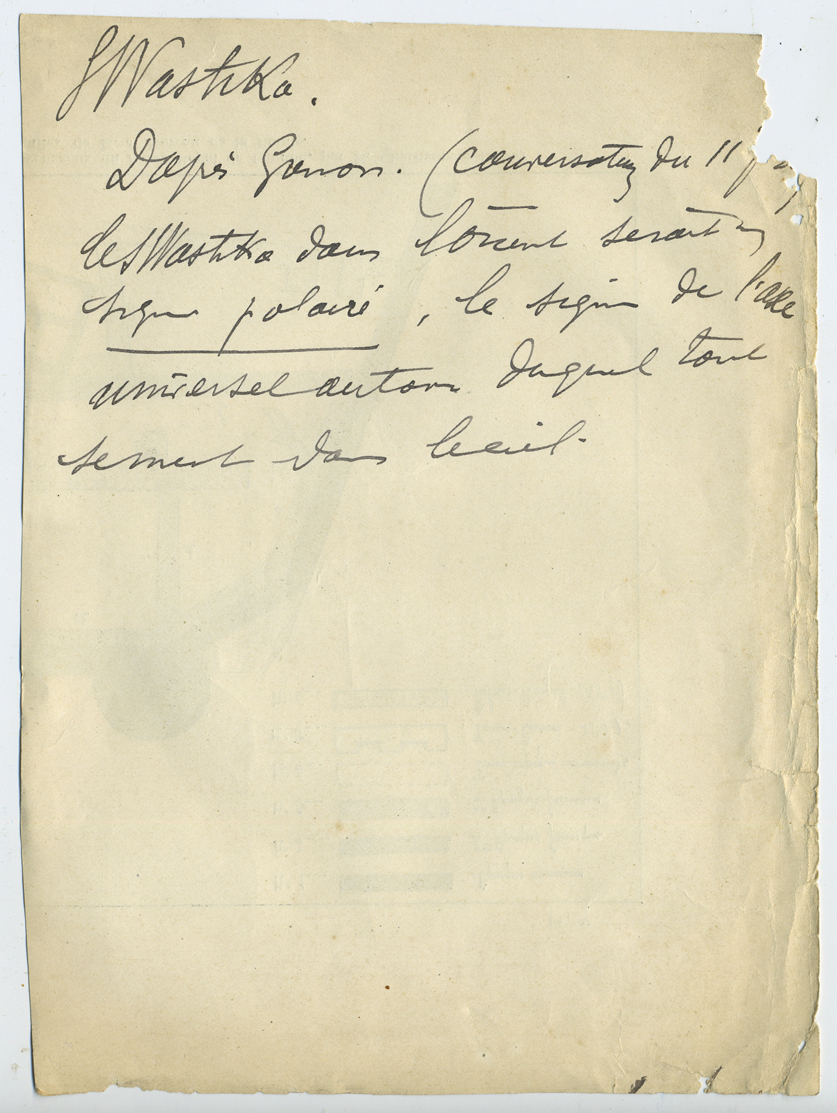 SWastika.
D'après Guénon. (conversation du 11
le SWastika dans l'orient serait un
signe polaire, le signe de l'axe
universel autour duquel tout
se meut dans le ciel.